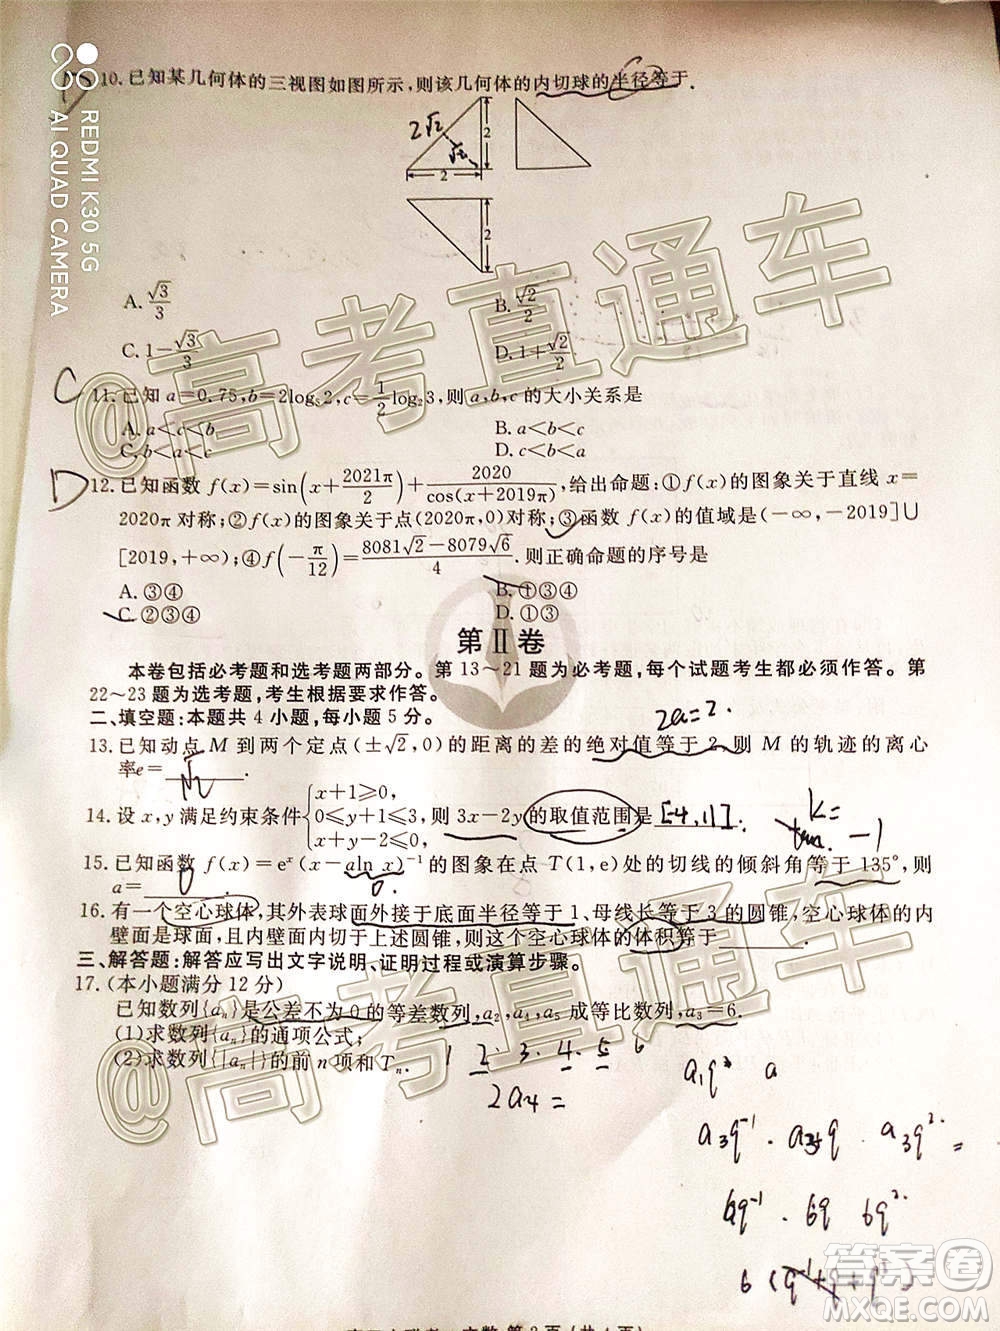 REDMI K30 5G
AI QUAD CAMERA
10.已知某几何体的三视图如图所示,则该几何体的内切球的半径等于.
2√2
√2
2
2
2
A.√3/3
B.√2/2
C.1-√3/3
D.1+√2/2
C
11.已知 a=0.75,b=2log₅2,c=1/2 log₂3,则 a,b,c 的大小关系是
A.a<c<b
B.a<b<c
C.b<a<c
D.c<a<b
D
12.已知函数 f(x)=sin(x+2021π/2)+2020/cos(x+2019π),给出命题:①f(x)的图象关于直线 x=
2020π 对称;②f(x)的图象关于点(2020π,0)对称;③函数 f(x)的值域是(-∞,-2019]∪
[2019,+∞);④f(-π/12)=(8081√2-8079√6)/4.则正确命题的序号是
A.③④
B.①③④
C.②③④
D.①③
第Ⅱ卷
本卷包括必考题和选考题两部分。第 13~21 题为必考题,每个试题考生都必须作答。第
22~23 题为选考题,考生根据要求作答。
二、填空题:本题共 4 小题,每小题 5 分。
2a=2.
13.已知动点 M 到两个定点(±√2,0)的距离的差的绝对值等于 2,则 M 的轨迹的离心
率e= √2
14.设 x,y 满足约束条件{x+1≥0, 0≤y+1≤3, x+y-2≤0, 则 3x-2y 的取值范围是 [-4,11].
k=
tan -1
15.已知函数 f(x)=eˣ(x-aln x)⁻¹ 的图象在点 T(1,e)处的切线的倾斜角等于 135°,则
a= 0.
0.
16.有一个空心球体,其外表球面外接于底面半径等于 1、母线长等于 3 的圆锥,空心球体的内
壁面是球面,且内壁面内切于上述圆锥,则这个空心球体的体积等于
三、解答题:解答应写出文字说明、证明过程或演算步骤。
17.(本小题满分 12 分)
已知数列{aₙ}是公差不为 0 的等差数列,a₂,a₄,a₅ 成等比数列,a₃=6.
(1)求数列{aₙ}的通项公式;
(2)求数列{|aₙ|}的前 n 项和 Tₙ.
1 2 . 3 . 4 . 5 6
2a₄=
a₁q³ a
a₃q⁻¹ . a₃q . a₃q². =
6q⁻¹ . 6q 6q².
6(q⁻¹+q+q²)=
@高考直通车
@高考直通车
答案卷